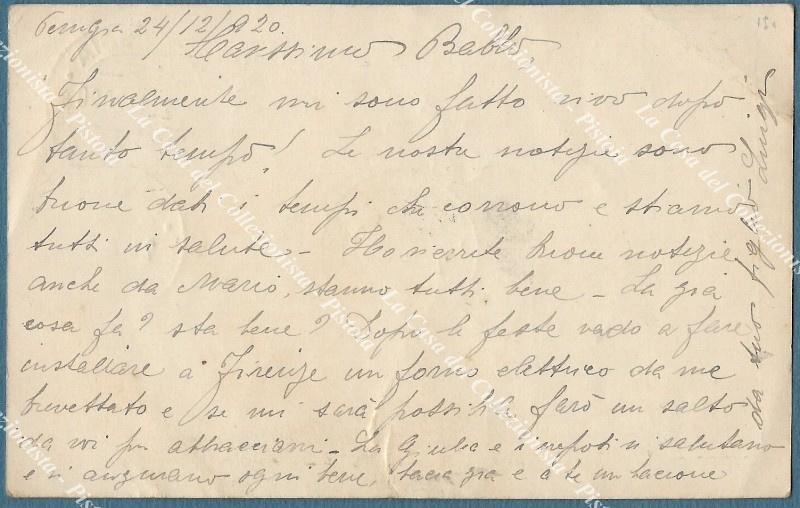 Perugia 24/12/920
Carissimo Babbo,
Finalmente mi sono fatto vivo dopo
tanto tempo! Le nostre notizie sono
buone dati i tempi che corrono e stiamo
tutti in salute – Ho ricevute buone notizie
anche da Mario, stanno tutti bene – La
cosa fa? sta bene? Dopo le feste vado a fare
installare a Firenze un forno elettrico da me
brevettato e se mi sarà possibile farò un salto
da voi per abbracciarvi – La Giulia e i nepoti vi salutano
e vi augurano ogni bene, e a te un bacione
da tuo figlio Luigi
La Casa del Collezionista - Pistoia